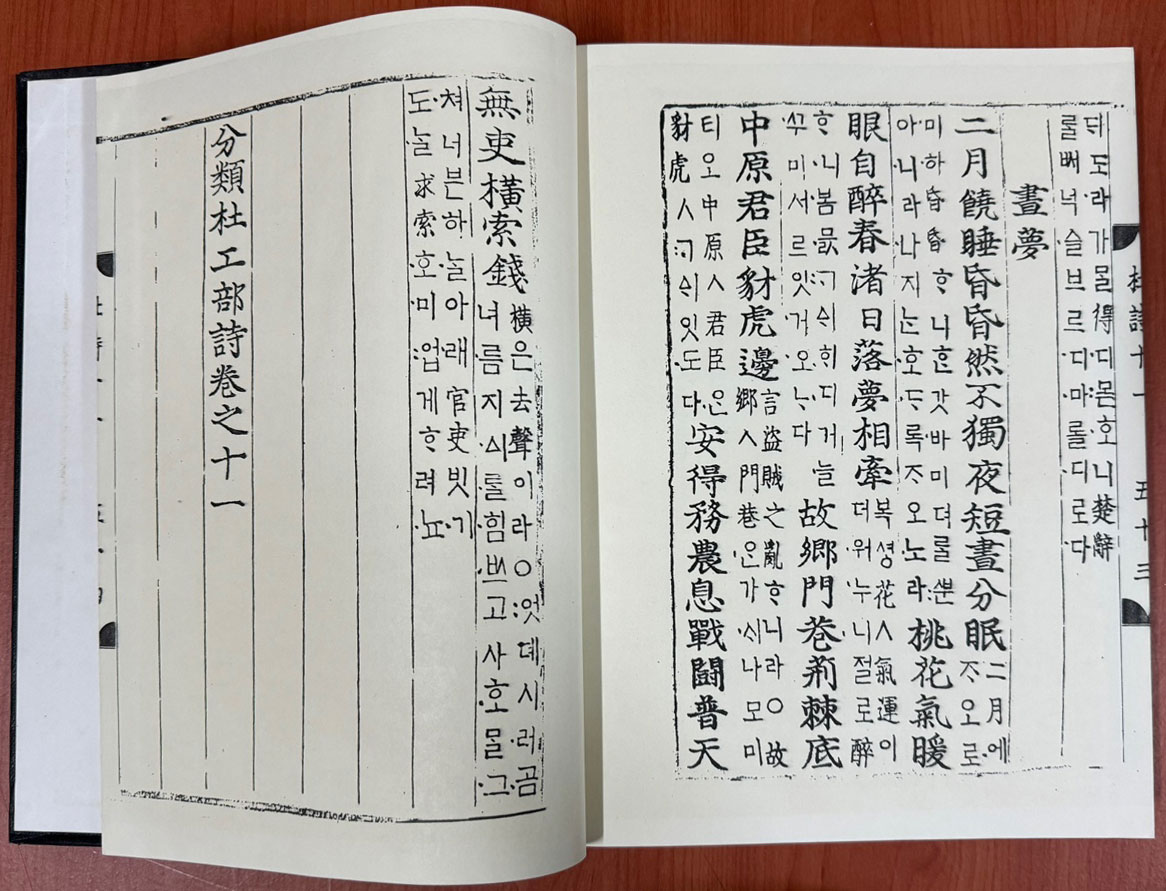 뒤도라가ᄆᆞᆯ得디몯ᄒᆞ니楚辭
ᄅᆞᆯᄡᅥ넉슬브르디마롤디로다
晝夢
二月饒睡昏昏然不獨夜短晝分眠
二月에
ᄌᆞ오로
미하昏昏ᄒᆞ니ᄒᆞᆫ갓바미뎌ᄅᆞᆯᄲᅮᆫ
아니라나지ᄂᆞᆫ호ᄃᆞ록ᄌᆞ오노라
桃花氣暖
眼自醉春渚日落夢相牽
복셩花ㅅ氣運이
더워누니절로醉
ᄒᆞ니봄믌ᄀᆞᅀᅵᄒᆡ디거늘
ᄭᅮ미서르잇거오ᄂᆞ다
故鄕門巷荊棘底
中原君臣豺虎邊
言盜賊之亂ᄒᆞ니라○故
鄕ㅅ門巷ᄋᆞᆫ가ᄉᆡ나모미
티오中原ㅅ君臣ᄋᆞᆫ
豺虎ㅅᄀᆞᅀᅵ잇도다
安得務農息戰鬪普天
杜詩十一 五十三
無吏橫索錢
橫은去聲이라○엇뎨시러곰
녀름지ᅀᅵᄅᆞᆯ힘ᄡᅳ고사호ᄆᆞᆯ그
쳐너븐하ᄂᆞᆯ아래官吏빗기
도ᄂᆞᆯ求索호미업게ᄒᆞ려뇨
分類杜工部詩卷之十一